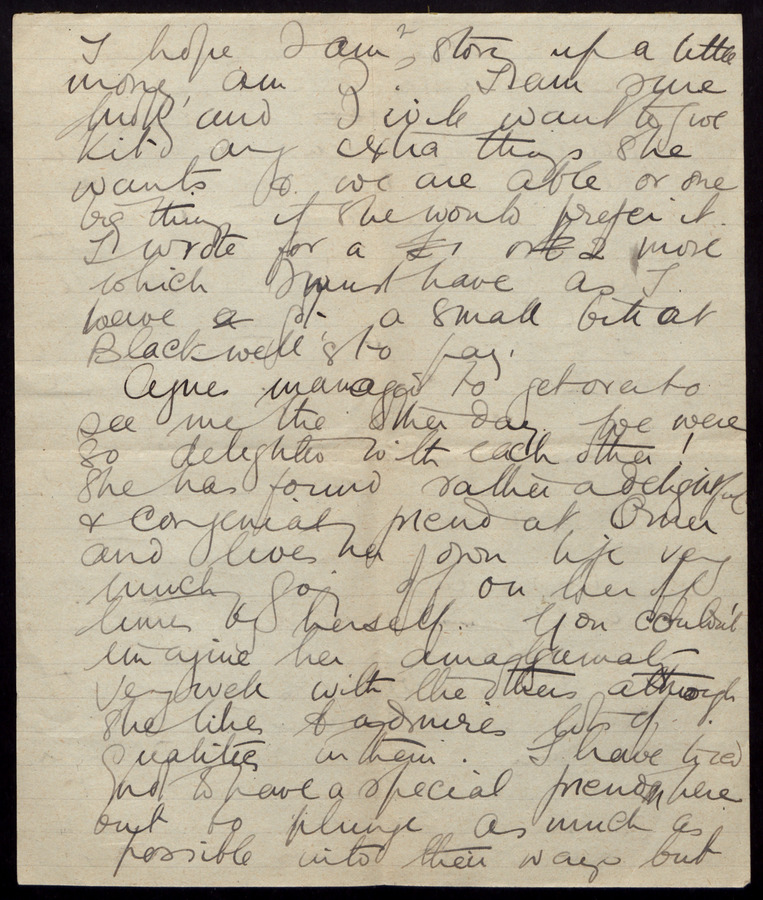 I hope I am storing up a little
more, am I? I am sure
and I will want to give
Kit any extra things she
wants & we are able or one
big thing if she would prefer it.
I wrote for a £1 or £2 more
which I must have as I
have a a small bill at
Blackwell's to pay.
Agnes managed to get over to
see me the other day. We were
so delighted with each other!
She has found rather a delightful
& congenial friend at Omer
and lives her own life very
much going off on her off
times by herself. You couldn't
imagine her amalgamating
very well with the others although
she likes & admires lots of
qualities in them. I have tried
not to have a special friend here
but to plunge as much as
possible into their ways but